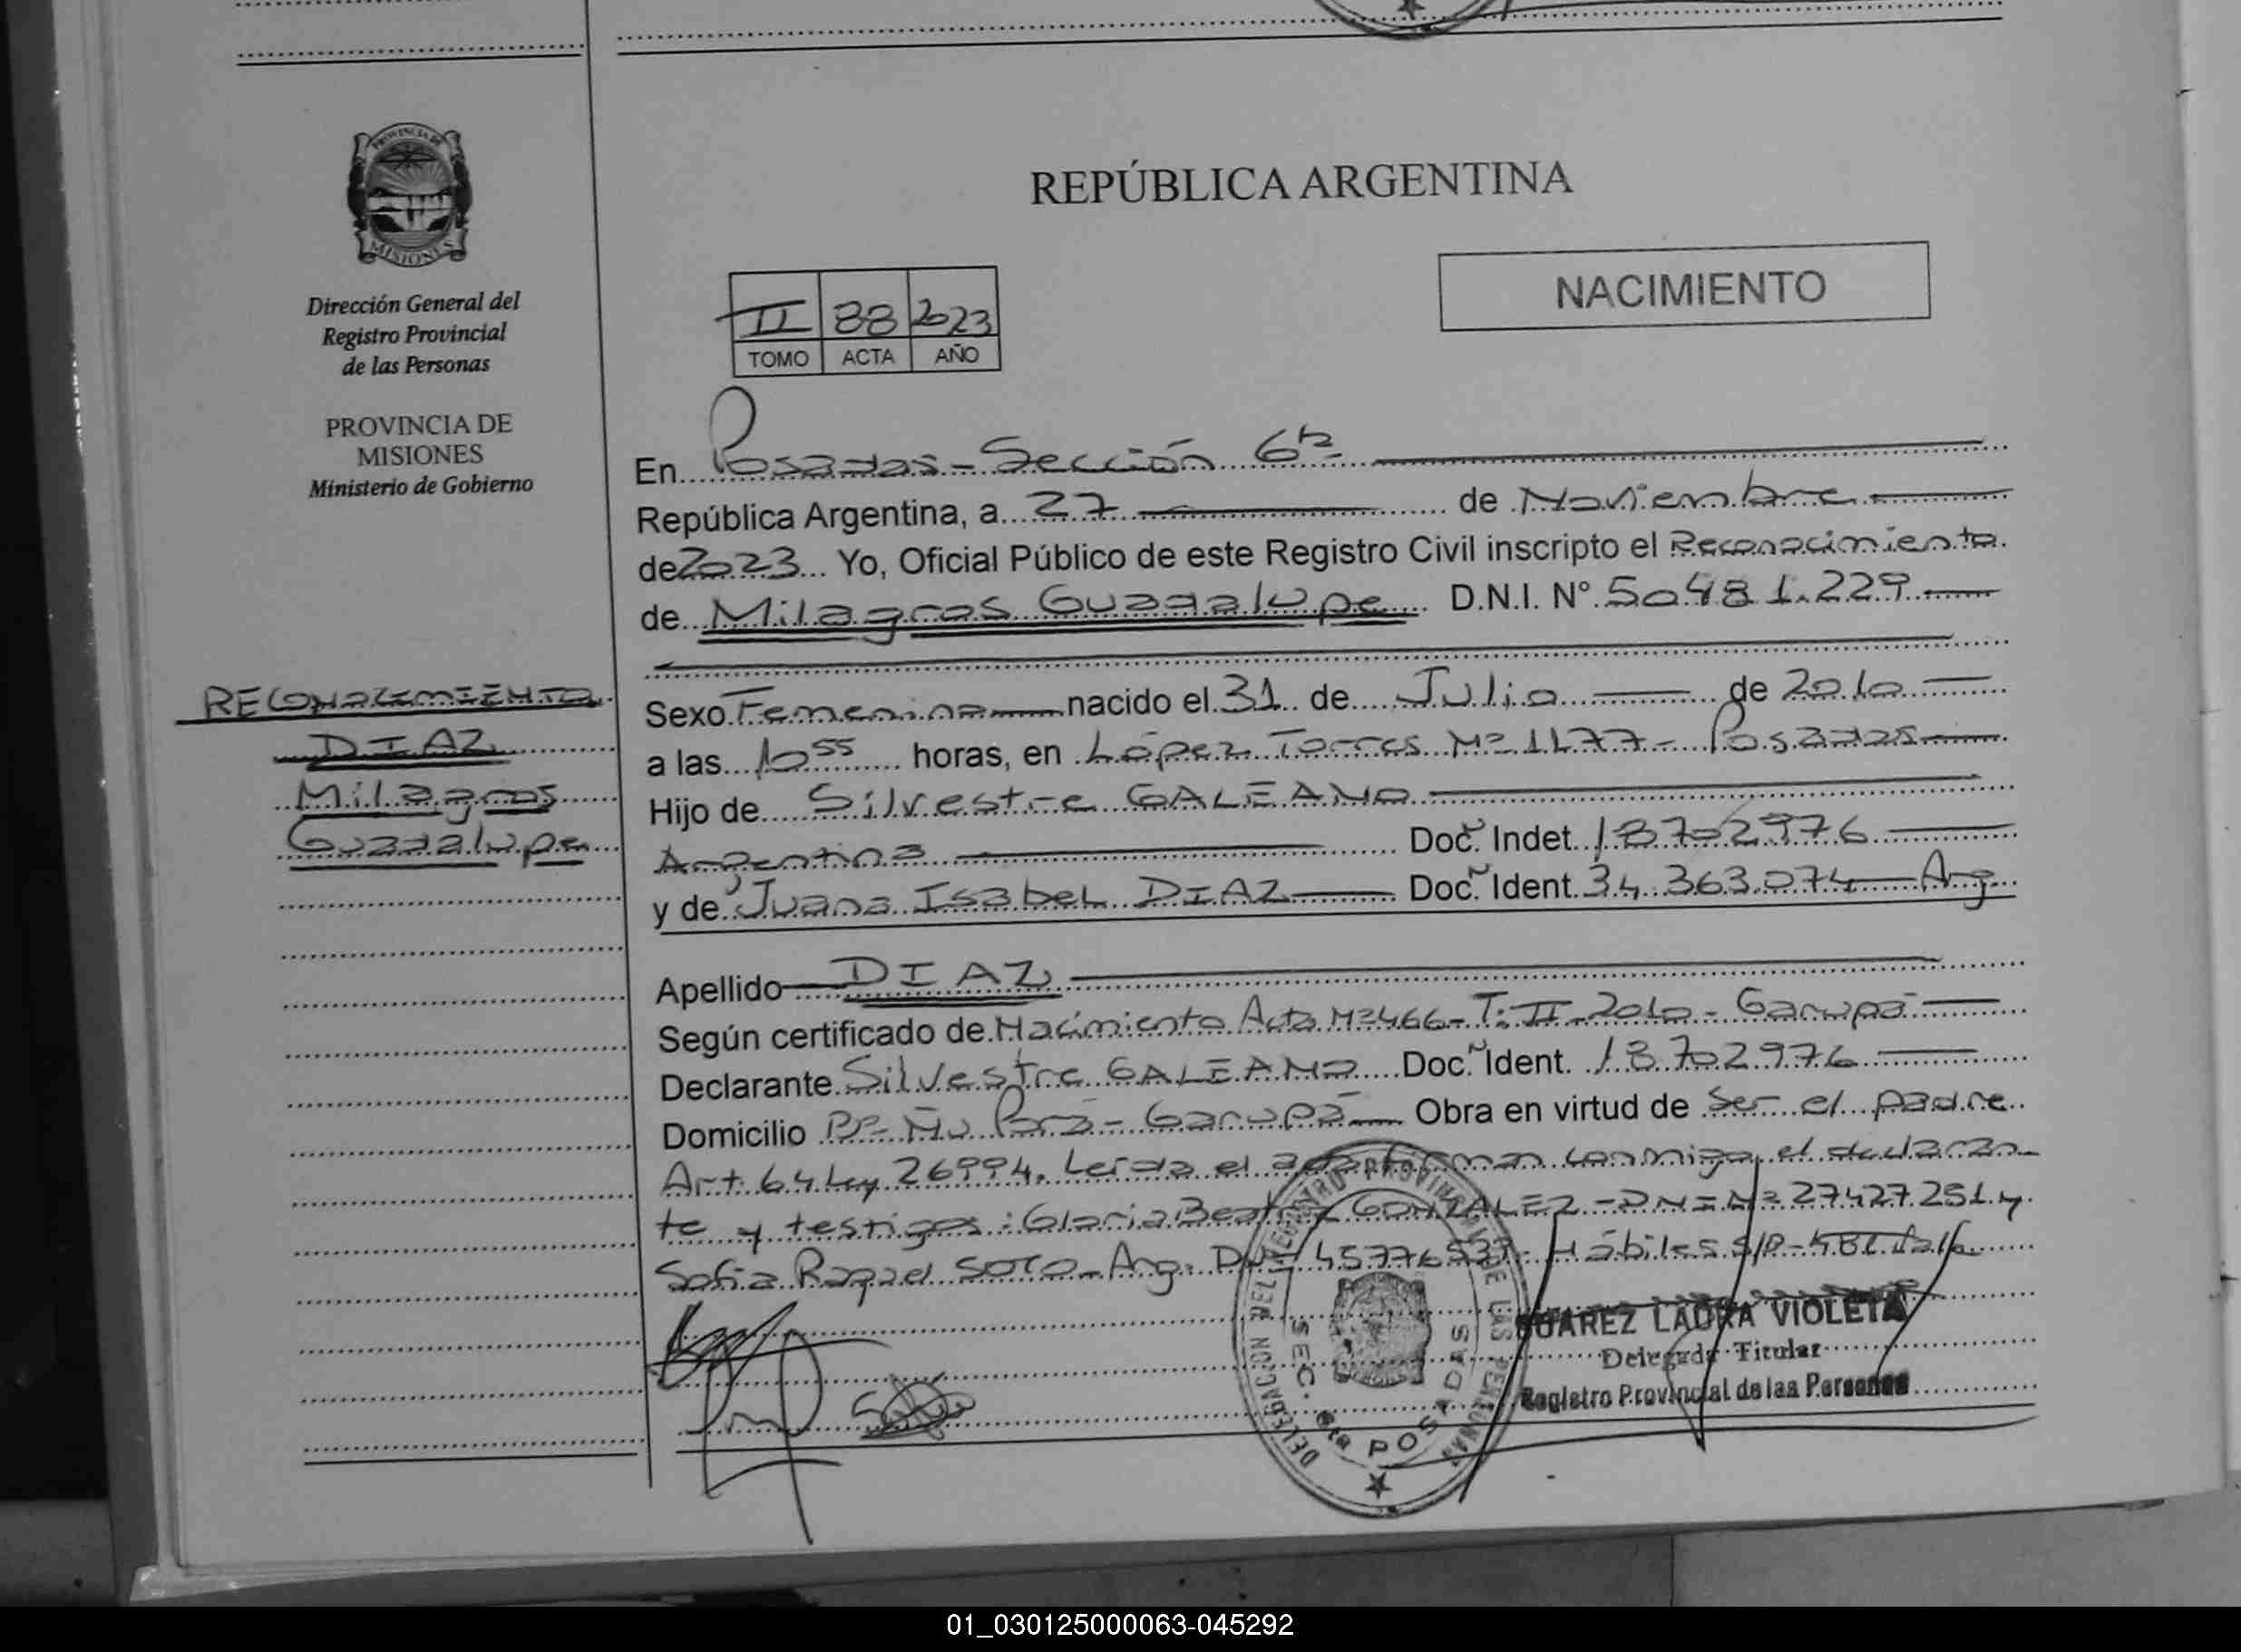 PROVINCIA DE
MISIONES
Dirección General del
Registro Provincial
de las Personas
PROVINCIA DE
MISIONES
Ministerio de Gobierno
RECONOCIMIENTO
DIAZ
Milagros
Guadalupe
REPÚBLICA ARGENTINA
NACIMIENTO
II 88 2023
TOMO ACTA AÑO
En Posadas - Sección 6ta
República Argentina, a 27 de Noviembre
de 2023 Yo, Oficial Público de este Registro Civil inscripto el Reconocimiento
de Milagros Guadalupe D.N.I. N° 50.481.229
Sexo Femenino nacido el 31 de Julio de 2010
a las 10 55 horas, en López Torres Nº 1177 - Posadas
Hijo de Silvestre GALEANO
Argentina Doc. Indet. 18702976
y de Juana Isabel DIAZ Doc. Ident. 34.363.074 Arg.
Apellido DIAZ
Según certificado de Nacimiento Acta Nº 466 - T: II - 2010 - Garupá
Declarante Silvestre GALEANO Doc. Ident. 18702976
Domicilio Bº Ñu Porá - Garupá Obra en virtud de ser el padre
Art. 64 Ley 26994. Leída el acta firman conmigo el declaran-
te y testigos: Gloria Beatriz GONZALEZ - DNI Nº 27427251 y
Sofia Raquel SOTO - Arg. Hábiles S/P
SUAREZ LAURA VIOLETA
Delegada Titular
Registro Provincial de las Personas
DELEGACION DEL REGISTRO PROVINCIAL DE LAS PERSONAS
SEC. 6ta POSADAS
01_030125000063-045292